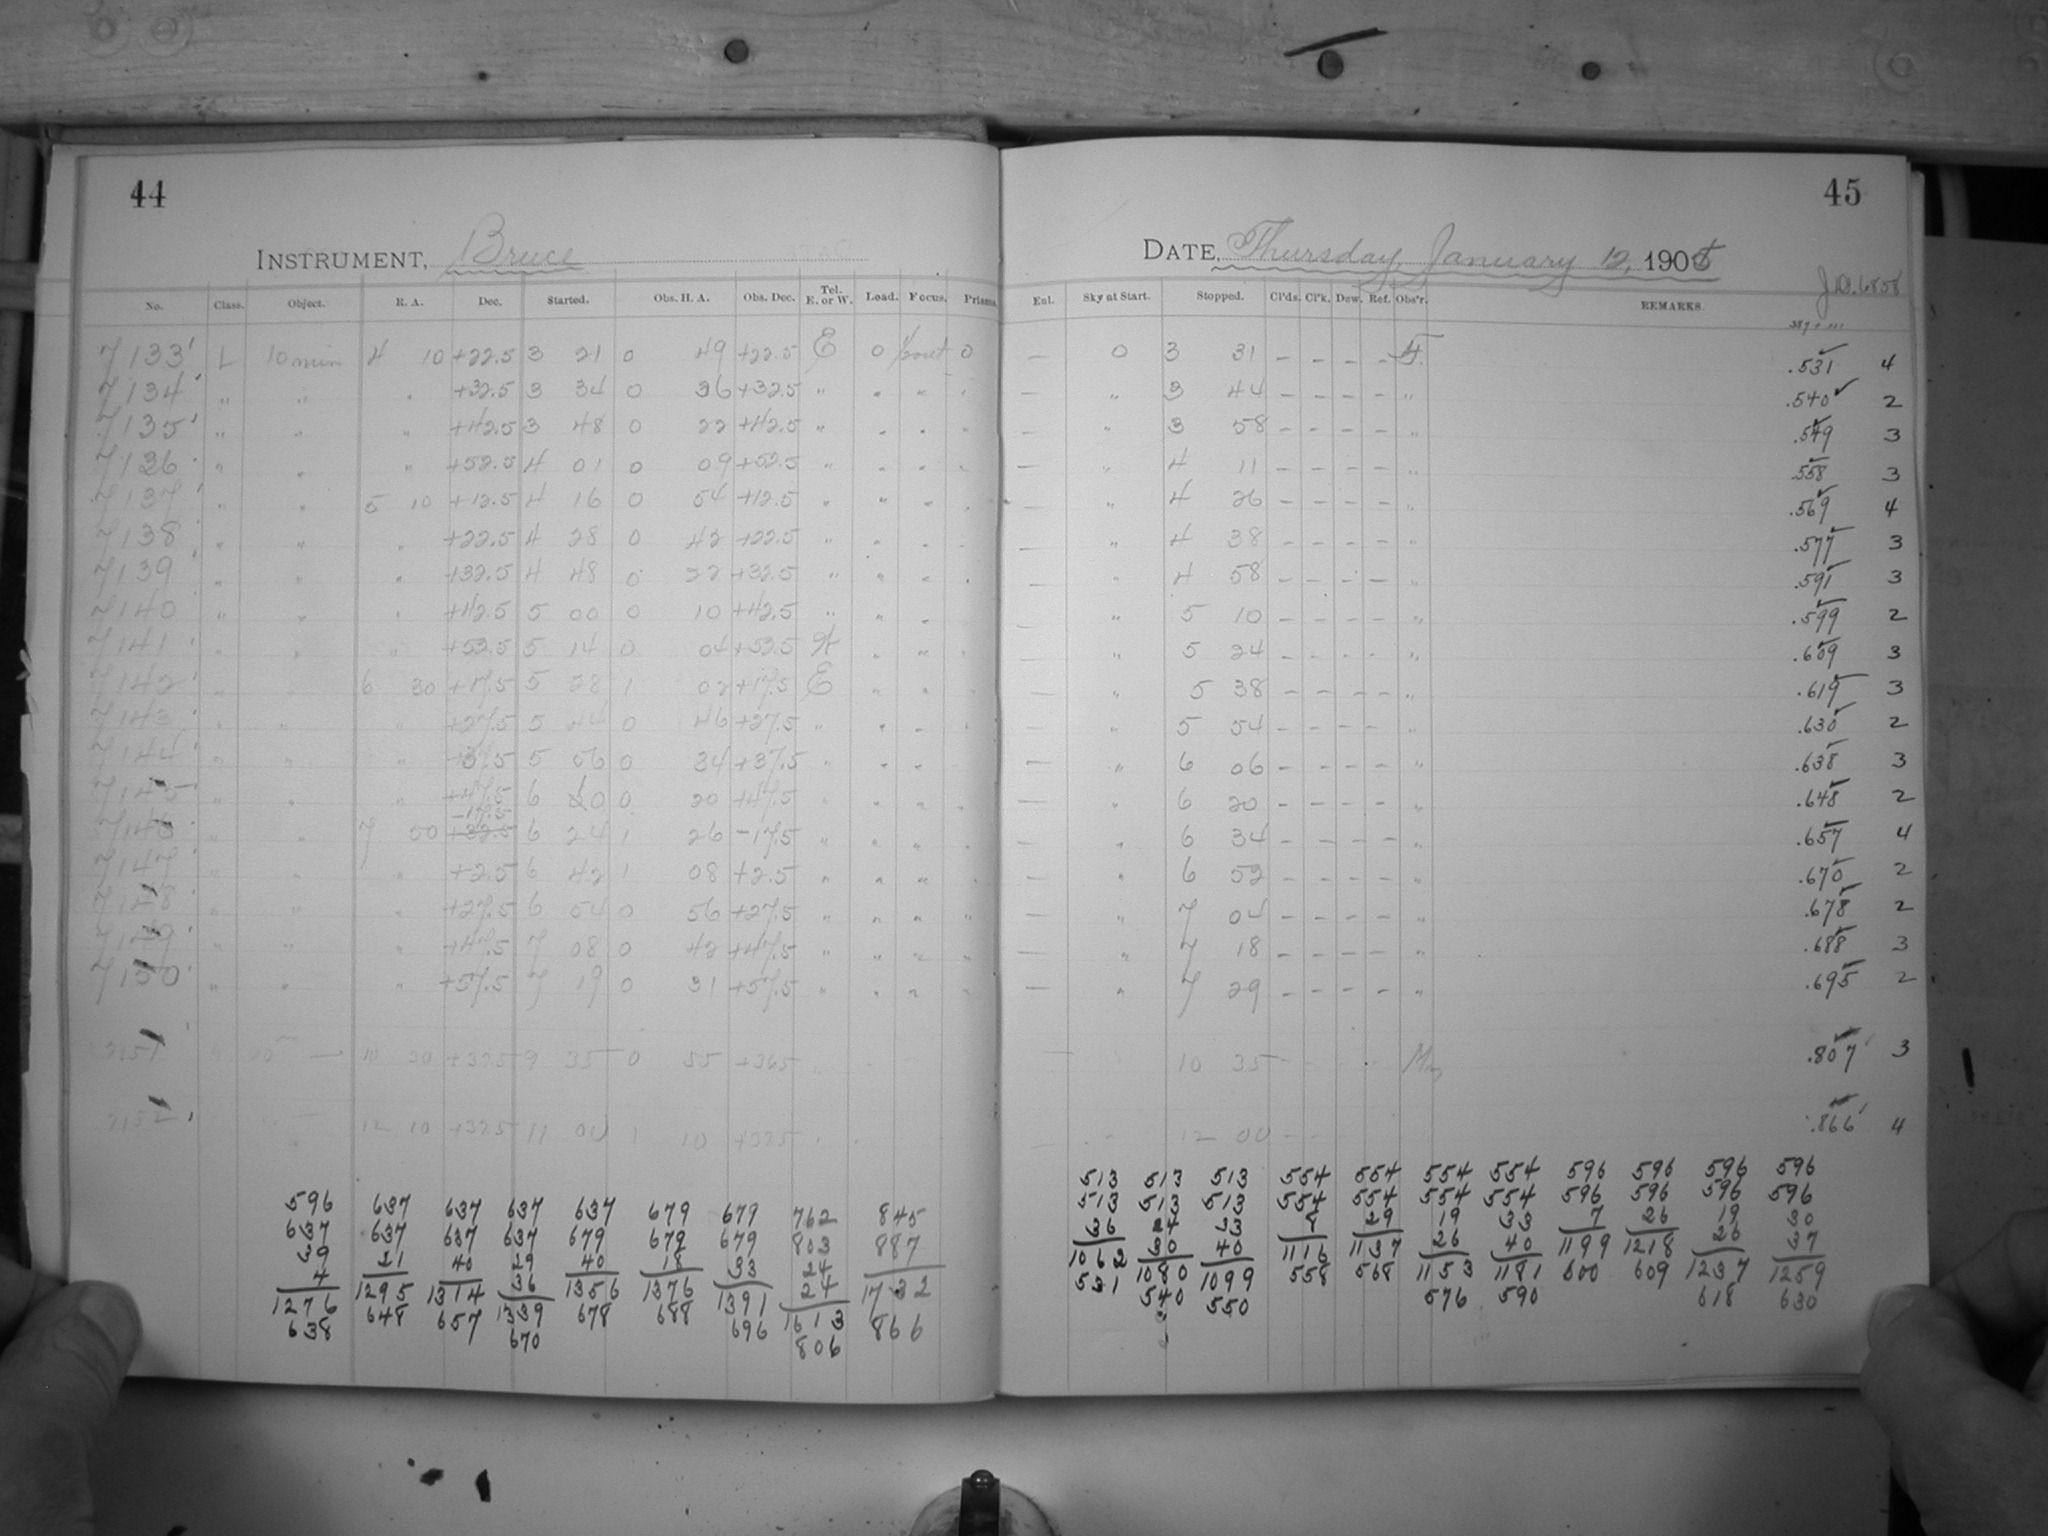 44
INSTRUMENT, Bruce
No. Class. Object. R. A. Dec. Started. Obs. H. A. Obs. Dec. Tel. E. or W. Load. Focus. Prisms.
7133 L 10 min 4 10 +22.5 3 21 0 49 +22.5 E 0 0
7134 " " " +32.5 3 34 0 36 +32.5 " " " "
7135 " " " +42.5 3 48 0 22 +42.5 " " " "
7136 " " " +52.5 4 01 0 09 +52.5 " " " "
7137 " " 5 10 +12.5 4 16 0 54 +12.5 " " " "
7138 " " " +22.5 4 28 0 42 +22.5 " " " "
7139 " " " +32.5 4 48 0 22 +32.5 " " " "
7140 " " " +42.5 5 00 0 10 +42.5 " " " "
7141 " " " +52.5 5 14 0 04 +52.5 W " " "
7142 " " 6 30 +17.5 5 28 1 02 +17.5 E " " "
7143 " " " +27.5 5 44 0 46 +27.5 " " " "
7144 " " " +37.5 5 56 0 34 +37.5 " " " "
7145 " " " +47.5 6 10 0 20 +47.5 " " " "
-17.5
7146 " " 7 50 +32.5 6 24 1 26 -17.5 " " " "
7147 " " " +2.5 6 42 1 08 +2.5 " " " "
7148 " " " +27.5 6 54 0 56 +27.5 " " " "
7149 " " " +47.5 7 08 0 42 +47.5 " " " "
7150 " " " +57.5 7 19 0 31 +57.5 " " " "
7151 10 30 +32.5 9 35 0 55
7152 12 10 +32.5 11 00 1 10 +32.5
596 637 637 637 637 679 679 762 845
637 637 637 637 679 679 679 803 887
39 21 40 29 40 18 33 24 1732
4 1295 1314 36 1356 1376 1391 24 866
1276 648 657 1339 678 688 696 1613
638 670 806
45
DATE, Thursday, January 12, 1905
J.D. 6858
Enl. Sky at Start. Stopped. Cl'ds. Cl'k. Dew. Ref. Obs'r. REMARKS.
— 0 3 31 – – – – F. .531 4
— " 3 44 – – – – " .540 2
— " 3 58 – – – – " .549 3
— " 4 11 – – – – " .558 3
— " 4 26 – – – – " .569 4
— " 4 38 – – – – " .577 3
— " 4 58 – – – – " .591 3
— " 5 10 – – – – " .599 2
— " 5 24 – – – – " .609 3
— " 5 38 – – – – " .619 3
— " 5 54 – – – – " .630 2
— " 6 06 – – – – " .638 3
— " 6 20 – – – – " .648 2
— " 6 34 – – – – " .657 4
— " 6 52 – – – – " .670 2
— " 7 04 – – – – " .678 2
— " 7 18 – – – – " .688 3
— " 7 29 – – – – " .695 2
— 10 35 – – – – .807 3
— 12 00 – – .866 4
513 513 513 554 554 554 554 596 596 596 596
513 513 513 554 554 554 554 596 596 596 596
36 24 33 8 29 19 33 7 26 19 30
1062 30 40 1116 1137 26 40 1199 1218 26 37
531 1080 1099 558 568 1153 1181 600 609 1237 1259
540 550 576 590 618 630